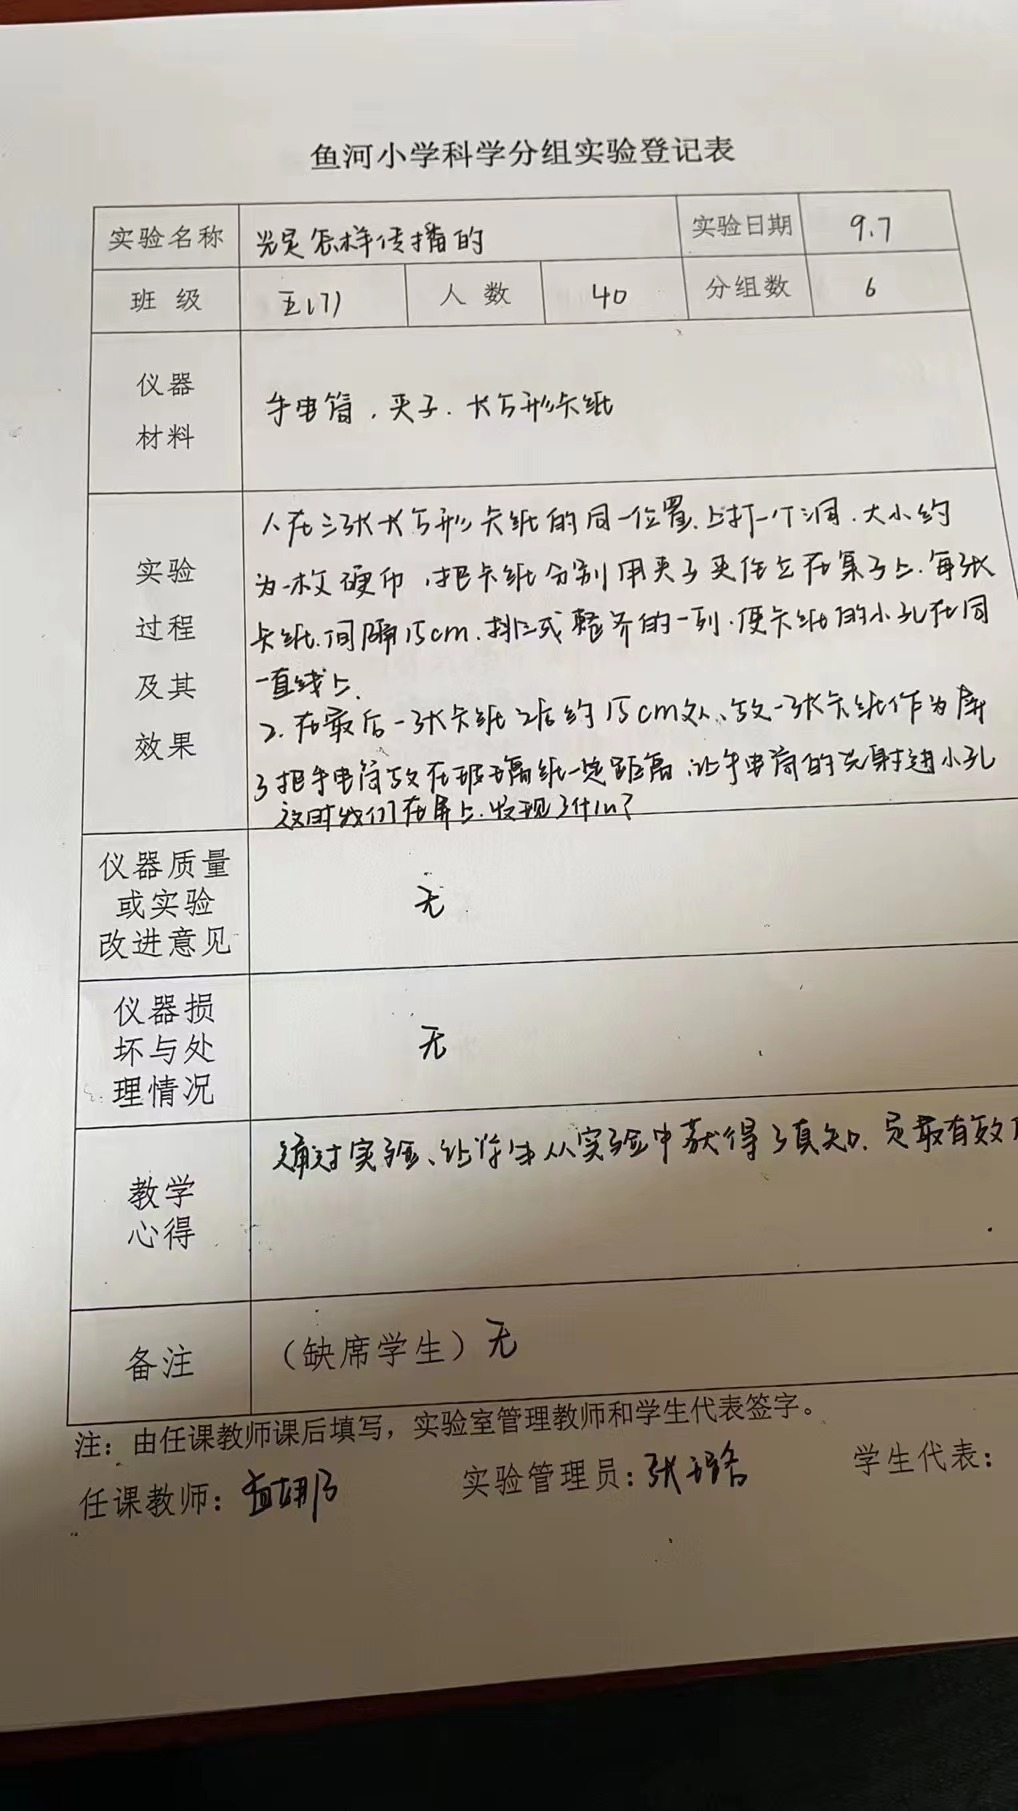 鱼河小学科学分组实验登记表
实验名称 光是怎样传播的 实验日期 9.7
班 级 五(7) 人 数 40 分组数 6
仪器
材料
手电筒、夹子、长方形卡纸
实验
过程
及其
效果
1.在三张长方形卡纸的同一位置上打一个洞.大小约
为一枚硬币,把卡纸分别用夹子夹住立在桌子上.每张
卡纸间隔15cm.排成整齐的一列.使卡纸的小孔在同
一直线上.
2.在最后一张卡纸之后约15cm处、放一张卡纸作为屏
3把手电筒放在 离纸一定距离、让手电筒的光射进小孔
这时我们在屏上.发现了什么?
仪器质量
或实验
改进意见
无
仪器损
坏与处
理情况
无
教学
心得
通过实验、让学生从实验中获得了真知.是最有效
备注
(缺席学生) 无
注:由任课教师课后填写,实验室管理教师和学生代表签字。
任课教师: 实验管理员:张 学生代表: